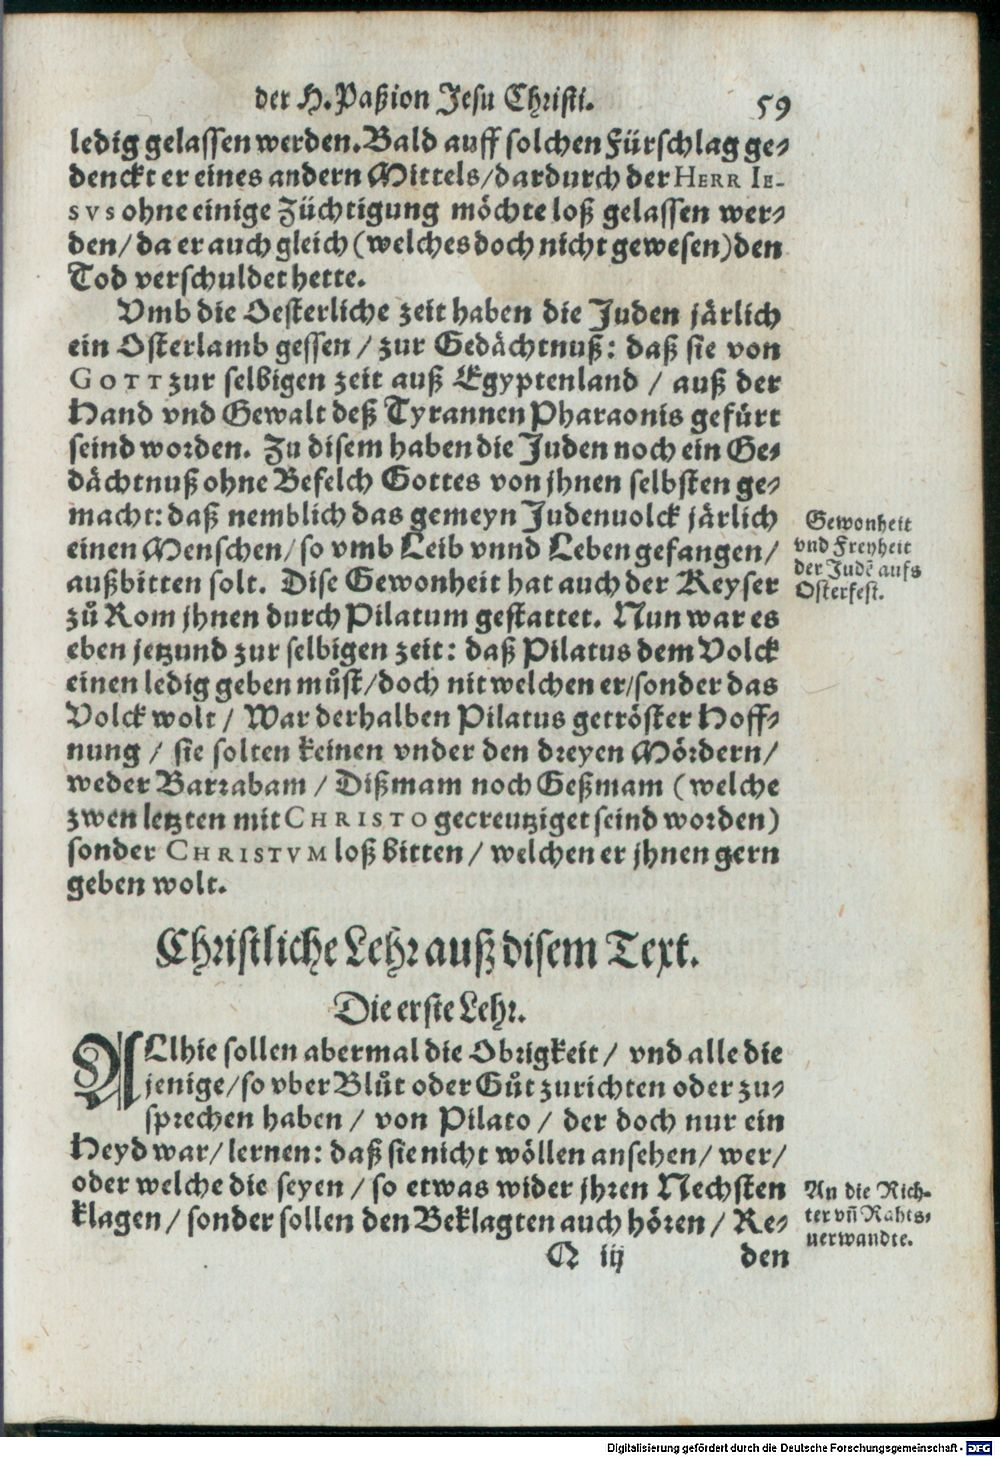 der H. Paßion Jesu Christi. 59
ledig gelassen werden. Bald auff solchen Fürschlag ge-
denckt er eines andern Mittels/ dardurch der HERR IE-
SVS ohne einige Züchtigung möchte loß gelassen wer-
den/ da er auch gleich (welches doch nicht gewesen) den
Tod verschuldet hette.
Vmb die Oesterliche zeit haben die Juden järlich
ein Osterlamb gessen / zur Gedächtnuß: daß sie von
GOTT zur selbigen zeit auß Egyptenland / auß der
Hand vnd Gewalt deß Tyrannen Pharaonis gefürt
seind worden. Zu disem haben die Juden noch ein Ge-
dächtnuß ohne Befelch Gottes von jhnen selbsten ge-
macht: daß nemblich das gemeyn Judenuolck järlich
einen Menschen/ so vmb Leib vnnd Leben gefangen/
außbitten solt. Dise Gewonheit hat auch der Keyser
zů Rom jhnen durch Pilatum gestattet. Nun war es
eben jetzund zur selbigen zeit: daß Pilatus dem Volck
einen ledig geben můst/ doch nit welchen er/ sonder das
Volck wolt / War derhalben Pilatus getröster Hoff-
nung / sie solten keinen vnder den dreyen Mördern/
weder Barrabam / Dißmam noch Geßmam (welche
zwen letzten mit CHRISTO gecreutziget seind worden)
sonder CHRISTVM loß bitten / welchen er jhnen gern
geben wolt.
Gewonheit
vnd Freyheit
der Judē aufs
Osterfest.
Christliche Lehr auß disem Text.
Die erste Lehr.
ALlhie sollen abermal die Obrigkeit / vnd alle die
jenige/ so vber Blůt oder Gůt zurichten oder zu-
sprechen haben / von Pilato / der doch nur ein
Heyd war/ lernen: daß sie nicht wöllen ansehen/ wer/
oder welche die seyen / so etwas wider jhren Nechsten
klagen / sonder sollen den Beklagten auch hören / Re-
An die Rich-
ter vñ Rahts-
uerwandte.
Q iij den
Digitalisierung gefördert durch die Deutsche Forschungsgemeinschaft - DFG